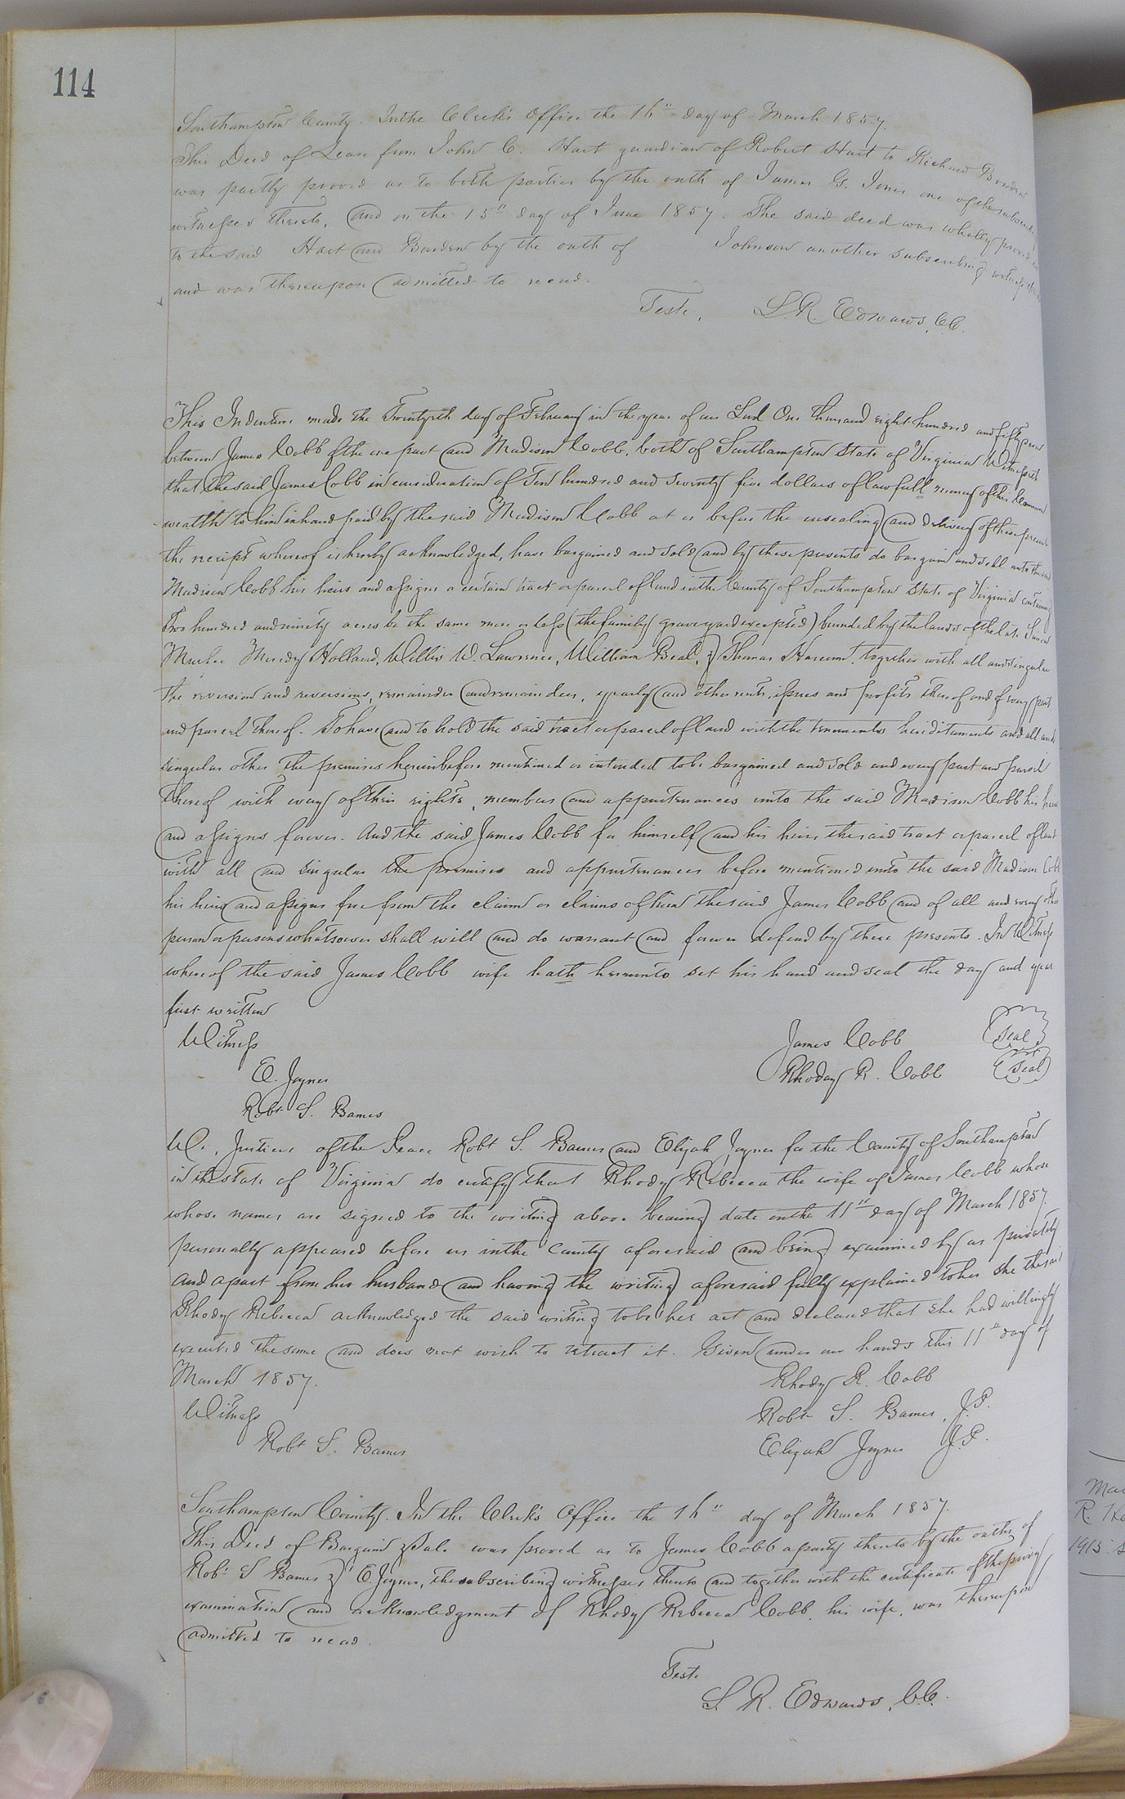 114
Southampton County. In the Clerk's Office the 16th day of March 1857.
This Deed of Lease from John C. Hart guardian of Robert Hart to Richard
was partly proved as to both parties by the oath of James G. Jones one of the
witnesses thereto, and on the 15th day of June 1857. The said deed was wholly
to the said Hart and by the oath of Johnson another subscribing
and was thereupon admitted to record.
Teste, L. R. Edwards, CC.
This Indenture made the Twentyeth day of February in the year of our Lord One thousand eight hundred and fifty
between James Cobb of the one part and Madison Cobb, both of Southampton State of Virginia Witnesseth
that the said James Cobb in consideration of Ten hundred and seventy five dollars of lawfull money of this Common
wealth to him in hand paid by the said Madison Cobb at or before the ensealing and delivery of these
the receipt whereof is hereby acknowledged, have bargained and sold and by these presents do bargain and sell unto the said
Madison Cobb his heirs and assigns a certain tract or parcel of land in the County of Southampton State of Virginia
Two hundred and ninety acres be the same more or less (the family graveyard excepted) bounded by the lands of the late
Holland, Willis W. Lawrence, William Beal, & Thomas together with all and singular
the reversion and reversions, remainder and remainders, yearly and other rents, issues and profits thereof and of every part
and parcel thereof. To have and to hold the said tract or parcel of land with the tenements hereditaments and all and
singular other the premises hereinbefore mentioned or intended to be bargained and sold and every part and parcel
thereof with every of their rights, members and appurtenances unto the said Madison Cobb his heirs
and assigns forever. And the said James Cobb for himself and his heirs the said tract or parcel of land
with all and singular the premises and appurtenances before mentioned unto the said Madison Cobb
his heirs and assigns free from the claim or claims of him the said James Cobb and of all and every other
person or persons whatsoever shall will and do warrant and forever defend by these presents. In Witness
whereof the said James Cobb wife hath hereunto set his hand and seal the day and year
first written
Witness James Cobb (Seal)
E. Joyner Rhoday R. Cobb (Seal)
Robt S. Barnes
We, Justices of the Peace Robt S. Barnes and Elijah Joyner for the County of Southampton
in the state of Virginia do certify that Rhody Rebecca the wife of James Cobb whose
whose names are signed to the writing above bearing date on the 11th day of March 1857
personally appeared before us in the County aforesaid and being examined by us privately
and apart from her husband and having the writing aforesaid fully explained to her she the said
Rhody Rebecca acknowledged the said writing to be her act and declared that she had willingly
executed the same and does not wish to retract it. Given under our hands this 11th day of
March 1857. Rhody R. Cobb
Witness Robt S. Barnes, J.P.
Robt S. Barnes Elijah Joyner J.P.
Southampton County. In the Clerk's Office the 16th day of March 1857.
This Deed of Bargain & Sale was proved as to James Cobb a party thereto by the oaths of
Robt S Barnes & E. Joyner, the subscribing witnesses thereto and together with the certificate of the privy
examination and acknowledgment of Rhody Rebecca Cobb, his wife, was thereupon
admitted to record.
Teste
L. R. Edwards, C.C.